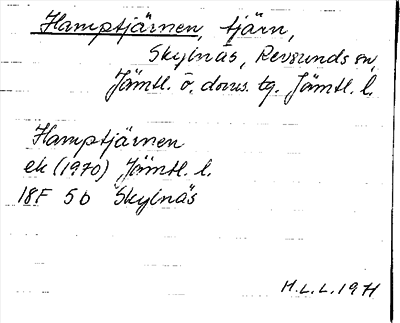 Hamptjärnen, tjärn,
Skylnäs, Revsunds sn,
Jämtl. ö. doms. tg. Jämtl. l.
Hamptjärnen
ek (1970) Jämtl. l.
18F 5b Skylnäs
H.L.L. 1971